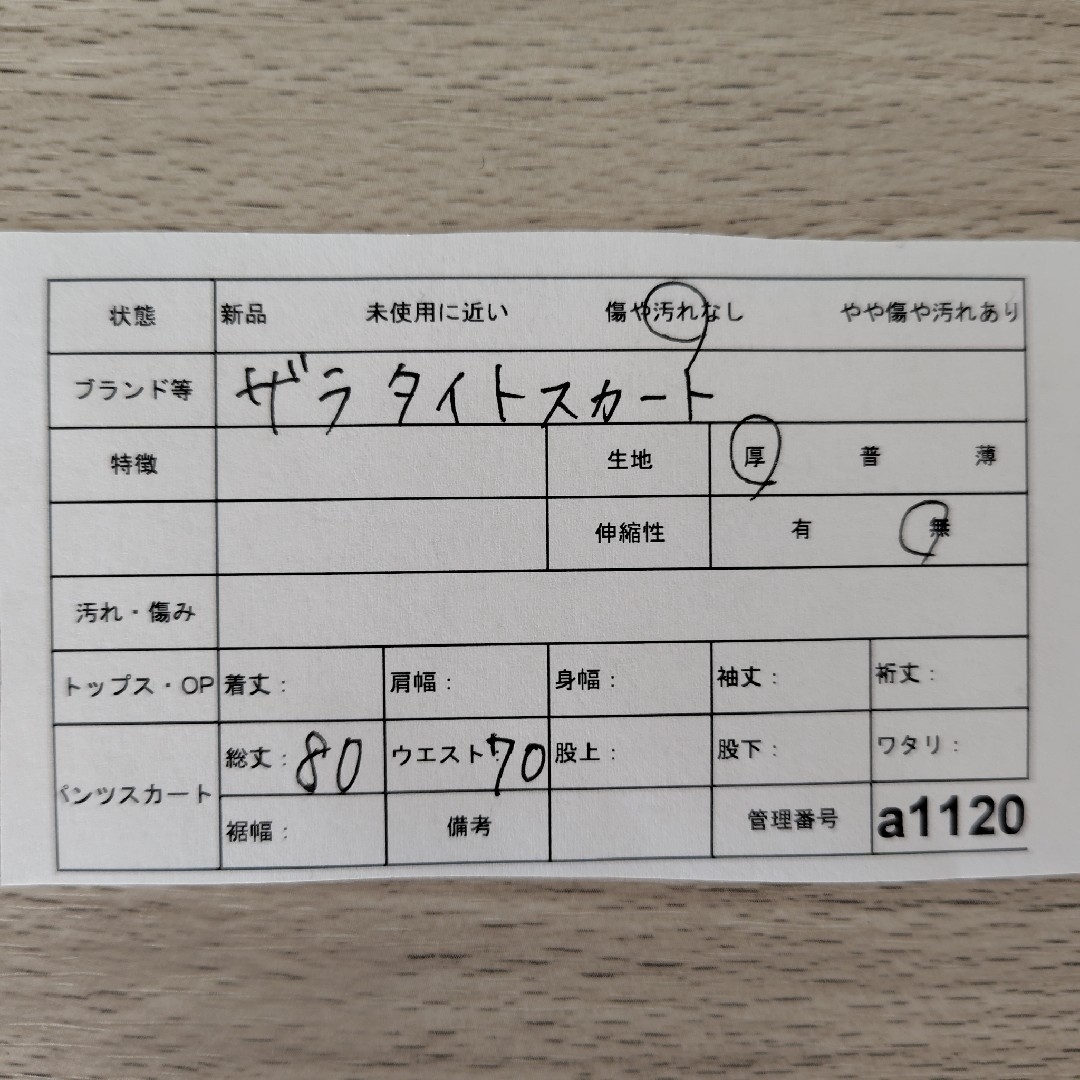 状態 新品 未使用に近い 傷や汚れなし やや傷や汚れあり
ブランド等 ザラ タイトスカート
特徴 生地 厚 普 薄
伸縮性 有 無
汚れ・傷み
トップス・OP 着丈: 肩幅: 身幅: 袖丈: 裄丈:
パンツスカート 総丈:80 ウエスト:70 股上: 股下: ワタリ:
裾幅: 備考 管理番号 a1120